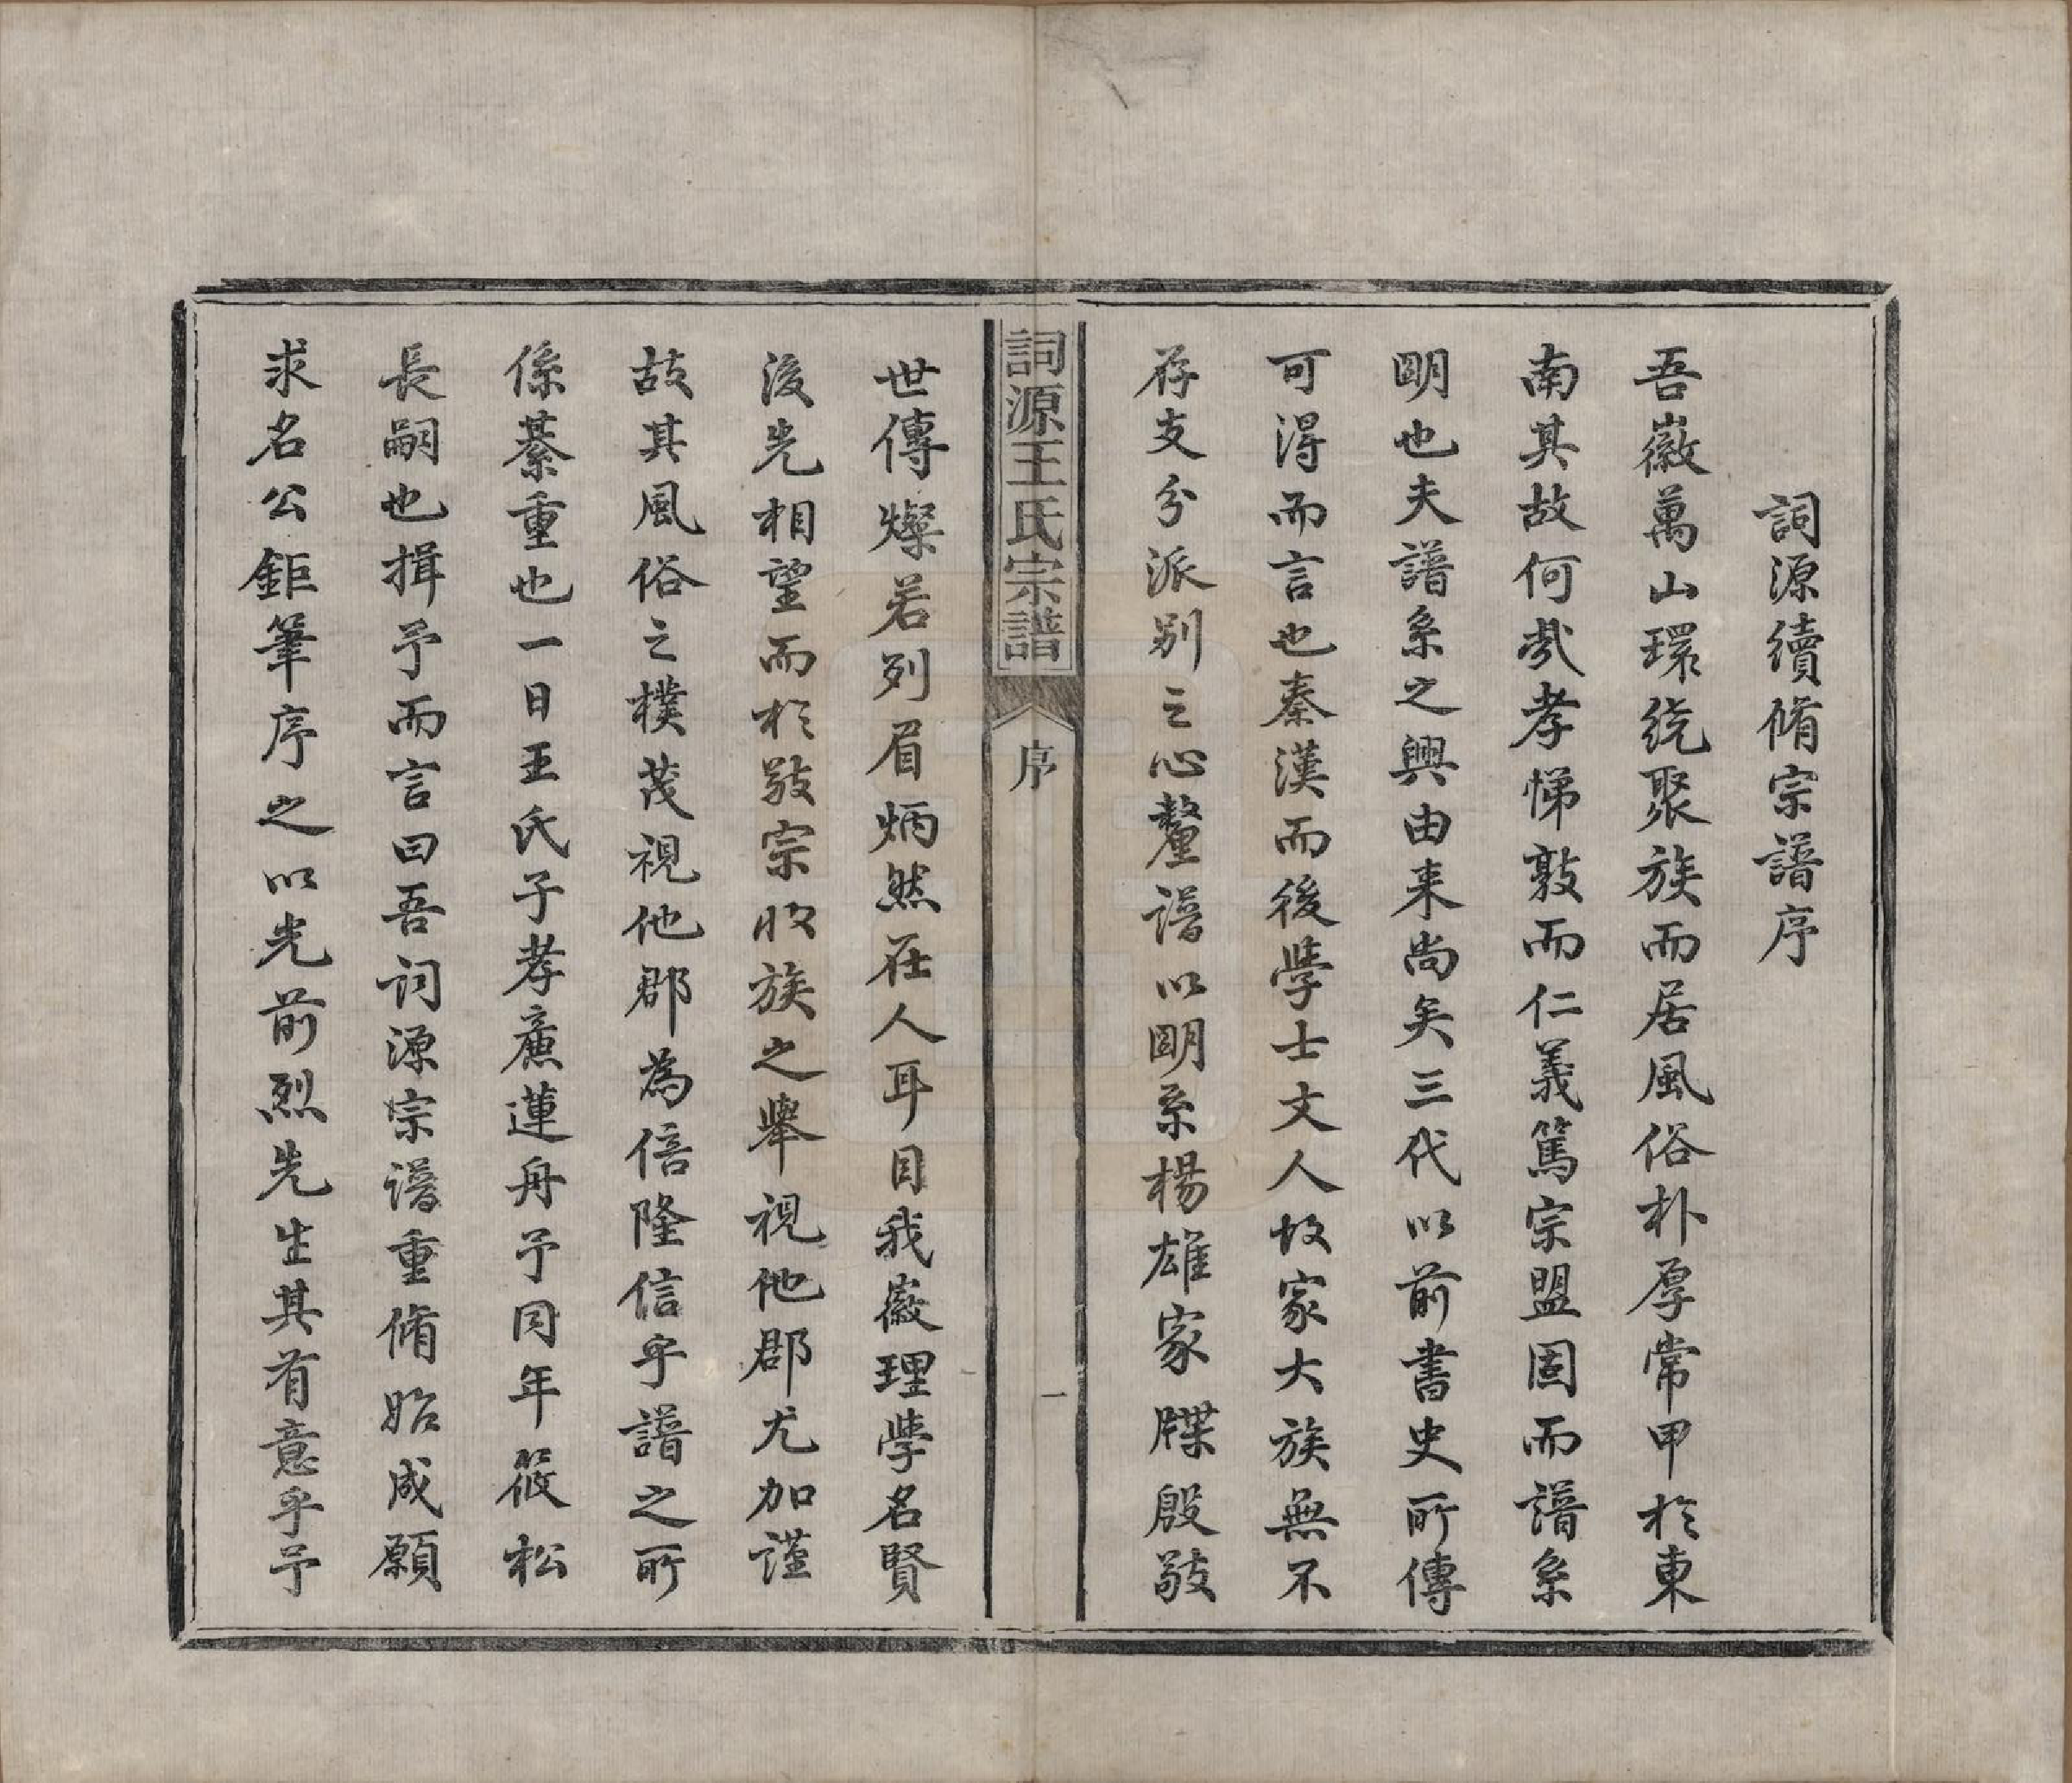 詞源續脩宗譜序
吾徽萬山環繞聚族而居風俗朴厚常甲於東
南其故何㢤孝悌敦而仁義篤宗盟固而譜系
朙也夫譜系之興由来尚矣三代以前書史所傳
可淂而言也秦漢而後學士文人故家大族無不
存支分派别之心釐譜以朙系楊雄家牒殷敬
世傳燦若列眉炳然在人耳目我徽理學名賢
後先相望而於敬宗收族之舉視他郡尤加謹
故其風俗之樸茂視他郡為倍隆信乎譜之所
係綦重也一日王氏子孝亷蓮舟予同年筱松
長嗣也揖予而言曰吾词源宗譜重脩始成願
求名公鉅筆序之以光前烈先生其有意乎予
詞源王氏宗譜
序
一